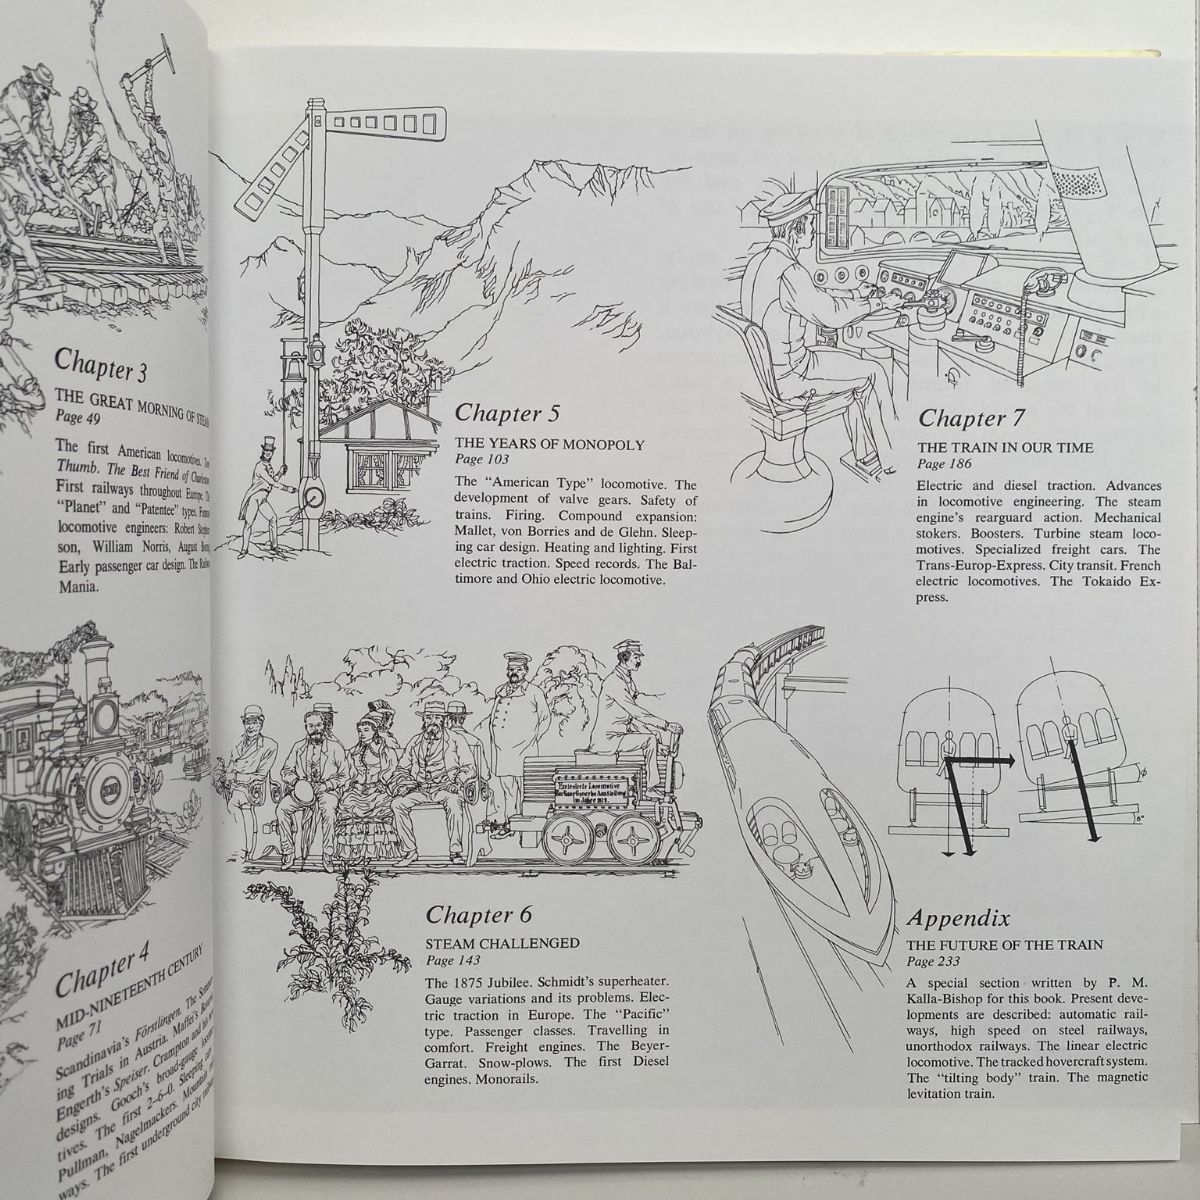 Chapter 3
THE GREAT MORNING OF STEAM
Page 49
The first American locomotives.
Thumb. The Best Friend of Charleston
First railways throughout Europe. The
"Planet" and "Patentee" types. Famous
locomotive engineers: Robert Stephen-
son, William Norris, August Borsig
Early passenger car design. The Railway
Mania.
Chapter 4
MID-NINETEENTH CENTURY
Page 71
Scandinavia's Förstlingen. The Semmer-
ing Trials in Austria. Maffei's Bavaria
Engerth's Speiser. Crampton and his
designs. Gooch's broad-gauge locomo-
tives. The first 2–6–0. Sleeping cars
Pullman, Nagelmackers. Mountain
ways. The first underground city railways
Chapter 5
THE YEARS OF MONOPOLY
Page 103
The "American Type" locomotive. The
development of valve gears. Safety of
trains. Firing. Compound expansion:
Mallet, von Borries and de Glehn. Sleep-
ing car design. Heating and lighting. First
electric traction. Speed records. The Bal-
timore and Ohio electric locomotive.
Chapter 7
THE TRAIN IN OUR TIME
Page 186
Electric and diesel traction. Advances
in locomotive engineering. The steam
engine's rearguard action. Mechanical
stokers. Boosters. Turbine steam loco-
motives. Specialized freight cars. The
Trans-Europ-Express. City transit. French
electric locomotives. The Tokaido Ex-
press.
Erste electe Locomotive
Berliner Gewerbe Ausstellung
im Jahre 1879.
8°
Chapter 6
STEAM CHALLENGED
Page 143
The 1875 Jubilee. Schmidt's superheater.
Gauge variations and its problems. Elec-
tric traction in Europe. The "Pacific"
type. Passenger classes. Travelling in
comfort. Freight engines. The Beyer-
Garrat. Snow-plows. The first Diesel
engines. Monorails.
Appendix
THE FUTURE OF THE TRAIN
Page 233
A special section written by P. M.
Kalla-Bishop for this book. Present deve-
lopments are described: automatic rail-
ways, high speed on steel railways,
unorthodox railways. The linear electric
locomotive. The tracked hovercraft system.
The "tilting body" train. The magnetic
levitation train.